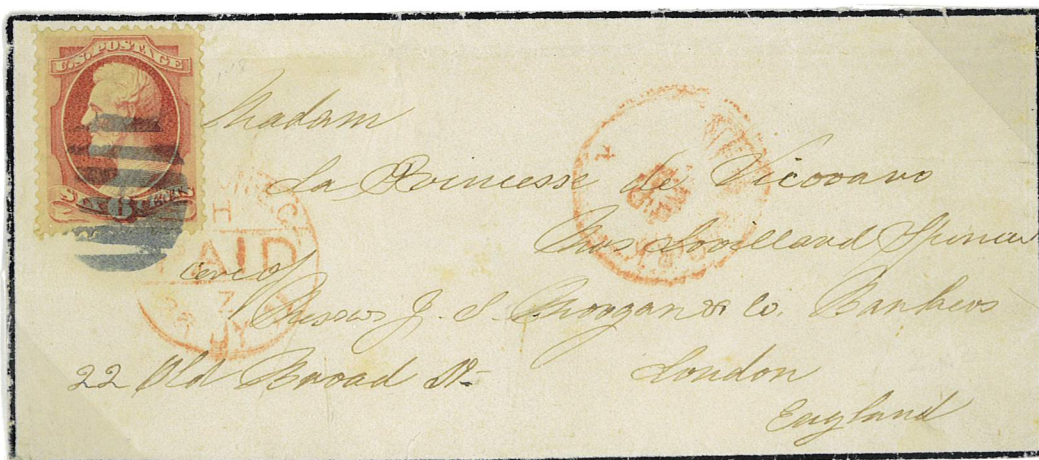 U.S. POSTAGE
SIX 6 CENTS
Madam
La Princesse de Vicovaro
Mrs Lorillard Spencer
care of
Messrs J. S. Morgan & Co. Bankers
22 Old Broad St-
London
England
PAID
7
JY